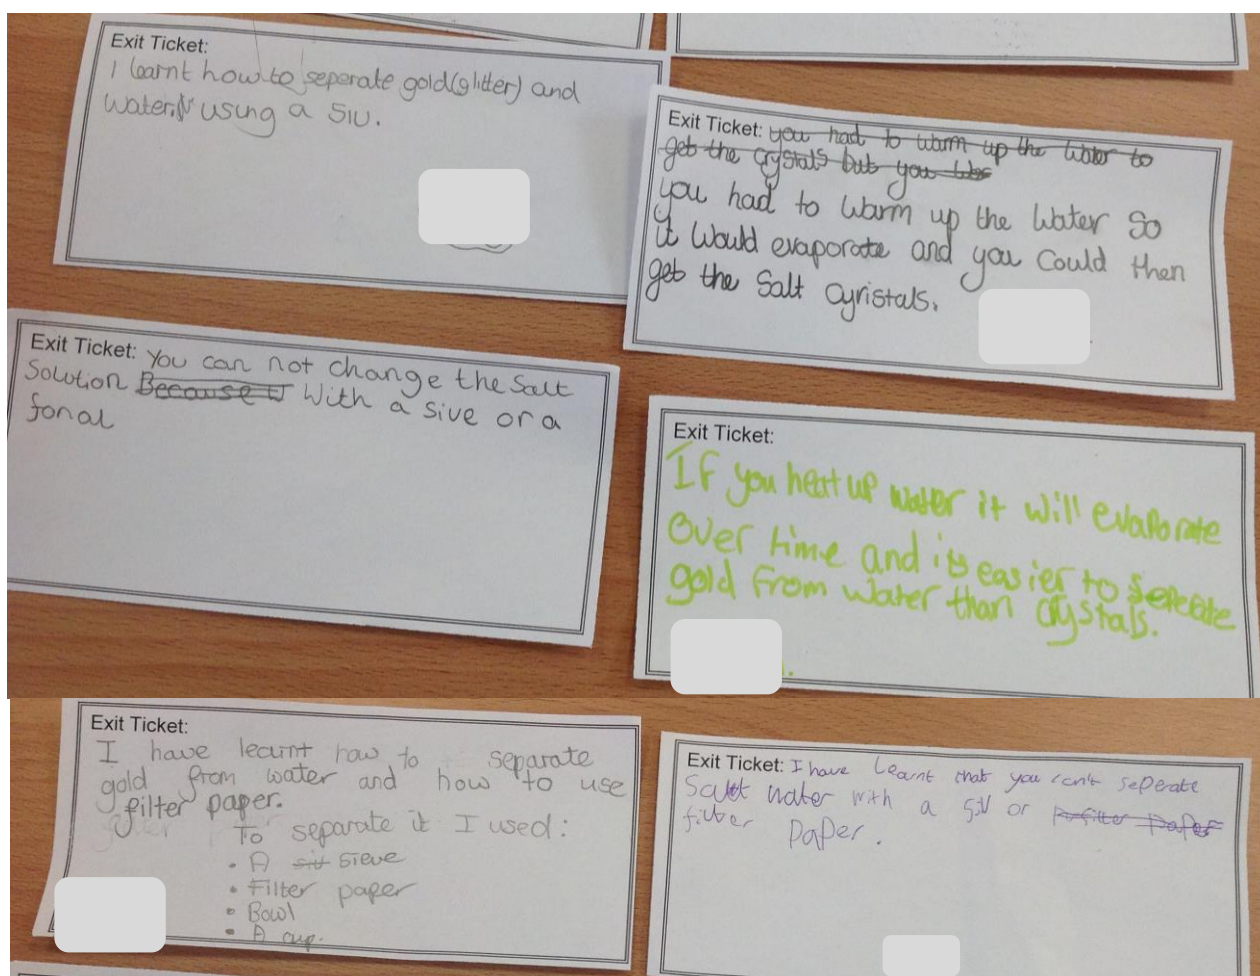 Exit Ticket:
I learnt how to seperate gold(glitter) and
water using a siv.
Exit Ticket: you had to warm up the water to
get the crystals but you
you had to warm up the water So
it would evaporate and you could then
get the salt cyristals.
Exit Ticket: You can not change the Salt
Solution Because With a sive or a
fonal
Exit Ticket:
If you heat up water it will evaporate
over time and its easier to seperate
gold from water than crystals.
Exit Ticket:
I have learnt how to separate
gold from water and how to use
filter paper.
To separate it I used:
• A siv sieve
• Filter paper
• Bowl
• A cup.
Exit Ticket: I have Learnt that you can't seperate
Salt water with a siv or filter paper
filter paper.